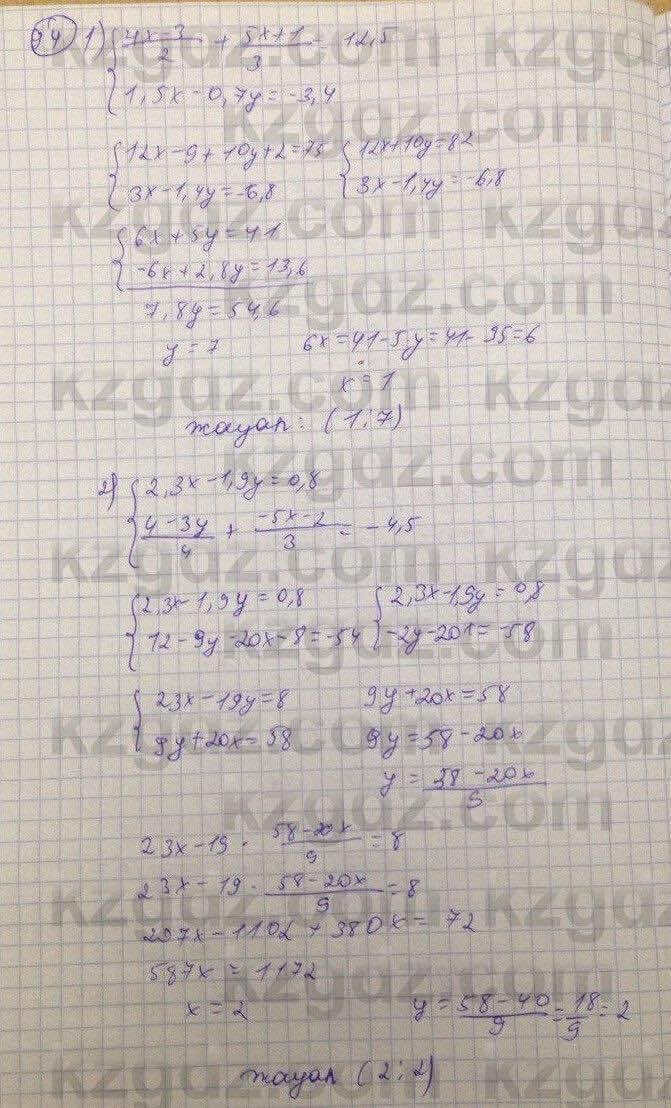 94 1) { (4x-3)/2 + (5x+1)/3 = 12,5
1,5x-0,7y=-3,4
{ 12x-9+10y+2=75 { 12x+10y=82
3x-1,4y=-6,8 3x-1,4y=-6,8
{ 6x+5y=41
-6x+2,8y=13,6
7,8y=54,6
y=7 6x=41-5y=41-35=6
x=1
жауап: (1;7)
2) { 2,3x-1,9y=0,8
(4-3y)/4 + (-5x-2)/3 = -4,5
{ 2,3x-1,9y=0,8 { 2,3x-1,9y=0,8
12-9y-20x-8=-54
{ 23x-19y=8 9y+20x=58
9y+20x=58 9y=58-20x
y = (58-20x)/9
23x-19· (58-20x)/9 =8
23x-19· (58-20x)/9 =8
207x-1102+380x=72
587x=1172
x=2 y= (58-40)/9 = 18/9 =2
жауап (2;2)
kzgdz.com